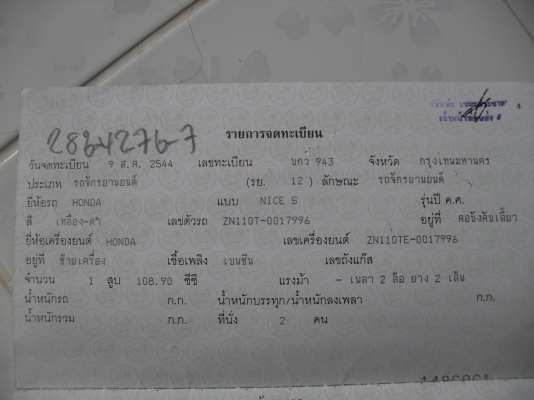 4
2834276-7
รายการจดทะเบียน
วันจดทะเบียน 9 ส.ค. 2544 เลขทะเบียน บกว 943 จังหวัด กรุงเทพมหานคร
ประเภท รถจักรยานยนต์ (รย. 12 ) ลักษณะ รถจักรยานยนต์
ยี่ห้อรถ HONDA แบบ NICE S รุ่นปี ค.ศ.
สี เหลือง-ดำ เลขตัวรถ ZN110T-0017996 อยู่ที่ คอบังคับเลี้ยว
ยี่ห้อเครื่องยนต์ HONDA เลขเครื่องยนต์ ZN110TE-0017996
อยู่ที่ ซ้ายเครื่อง เชื้อเพลิง เบนซิน เลขถังแก๊ส
จำนวน 1 สูบ 108.90 ซีซี แรงม้า - เพลา 2 ล้อ ยาง 2 เส้น
น้ำหนักรถ ก.ก. น้ำหนักบรรทุก/น้ำหนักลงเพลา ก.ก.
น้ำหนักรวม ก.ก. ที่นั่ง 2 คน